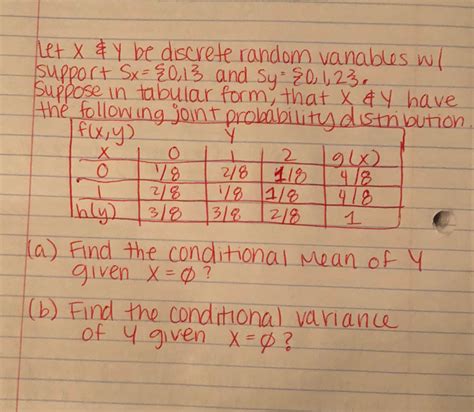 Let X & Y be discrete random variables w/
support Sx = {0,1} and Sy = {0,1,2}.
Suppose in tabular form, that X & Y have
the following joint probability distribution.
f(x,y) Y
X 0 1 2 g(x)
0 1/8 2/8 1/8 4/8
1 2/8 1/8 1/8 4/8
h(y) 3/8 3/8 2/8 1
(a) Find the conditional mean of Y
given X=∅?
(b) Find the conditional variance
of Y given X=∅?